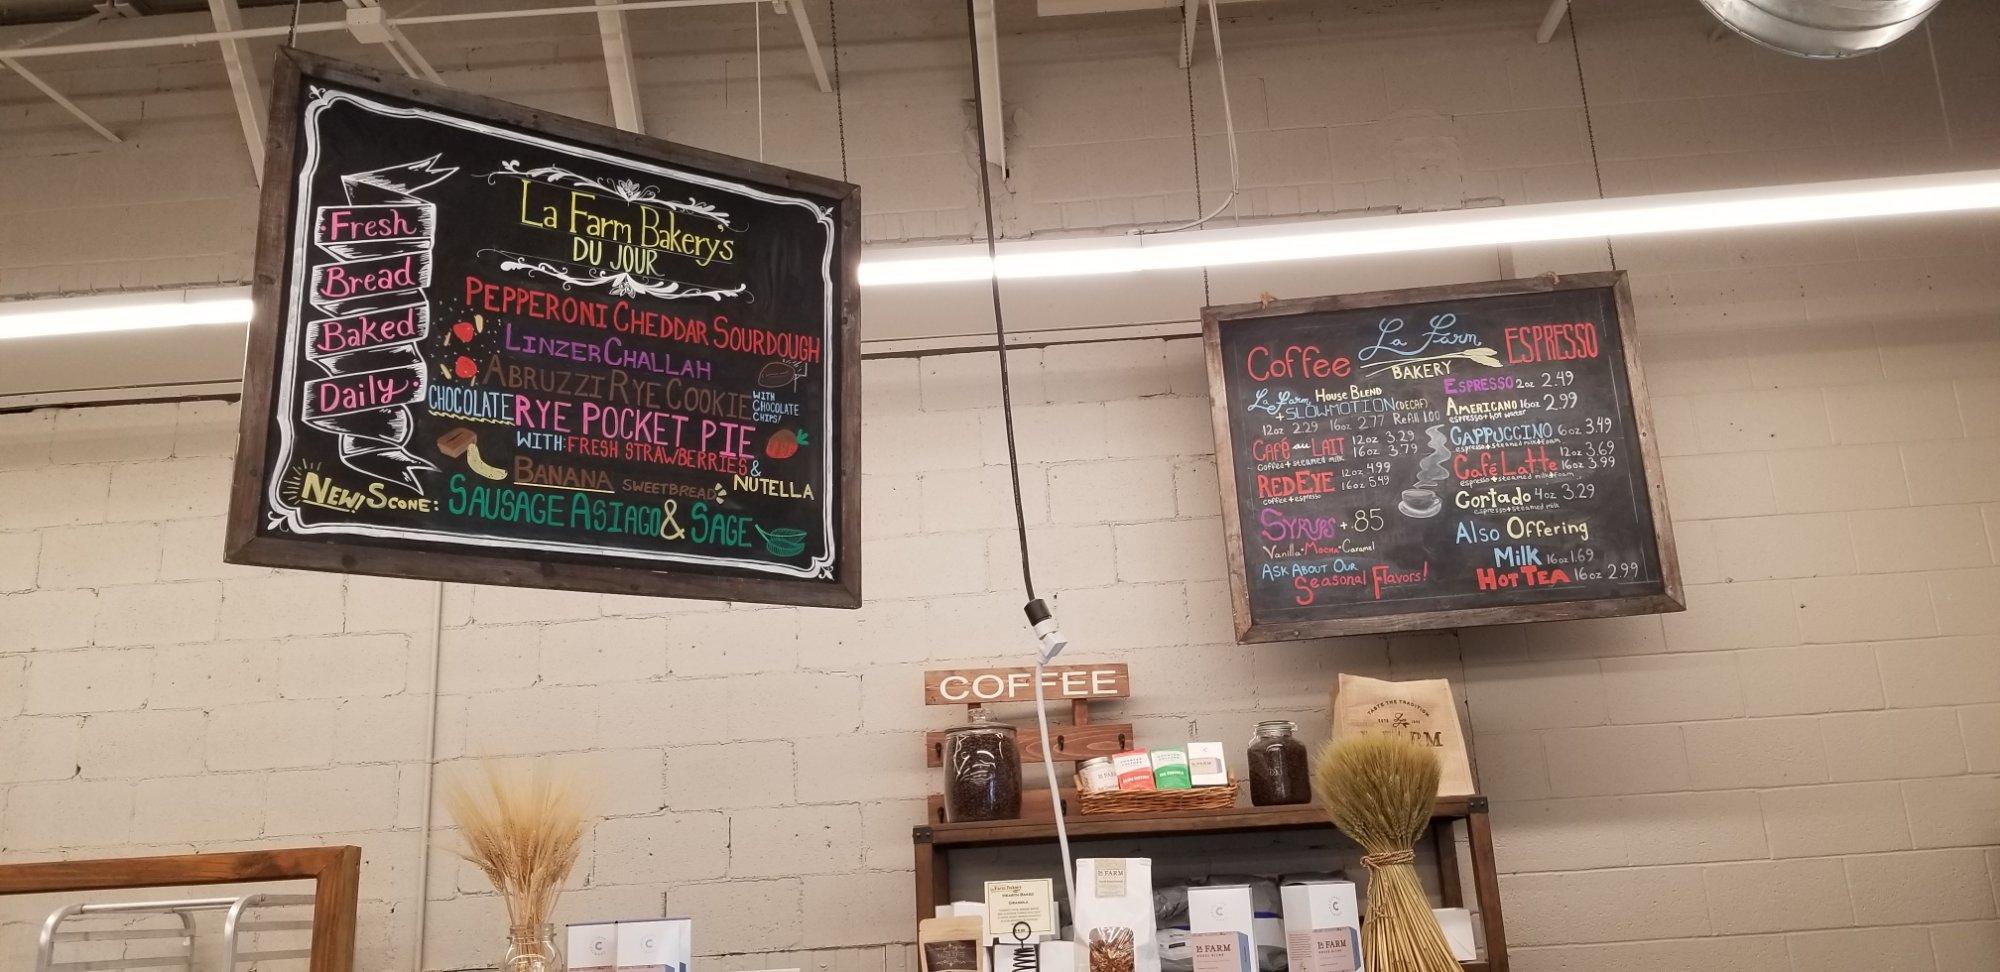 Fresh
Bread
Baked
Daily
La Farm Bakery's
DU JOUR
PEPPERONI CHEDDAR SOURDOUGH
LINZER CHALLAH
ABRUZZI RYE COOKIE WITH CHOCOLATE CHIPS!
CHOCOLATE RYE POCKET PIE
WITH: FRESH STRAWBERRIES &
BANANA SWEETBREAD NUTELLA
NEW! SCONE: SAUSAGE ASIAGO & SAGE
Coffee
La Farm
BAKERY
ESPRESSO
La Farm HOUSE BLEND
+ SLOWMOTION (DECAF)
12oz 2.29 16oz 2.77 Refill 1.00
CAFÉ au LAIT 12oz 3.29
coffee + steamed milk 16oz 3.79
REDEYE 12oz 4.99
coffee + espresso 16oz 5.49
SYRUPS + .85
Vanilla · Mocha · Caramel
ASK ABOUT OUR
Seasonal Flavors!
ESPRESSO 2oz 2.49
AMERICANO 16oz 2.99
espresso + hot water
CAPPUCCINO 6oz 3.49
espresso + steamed milk + foam
Café Latte 12oz 3.69
16oz 3.99
espresso + steamed milk + foam
Cortado 4oz 3.29
espresso + steamed milk
Also Offering
Milk 16oz 1.69
HOT TEA 16oz 2.99
COFFEE
TASTE THE TRADITION
La FARM
La FARM
La Farm Bakery
HEARTH BAKED
GRANOLA
La FARM
La FARM
La FARM